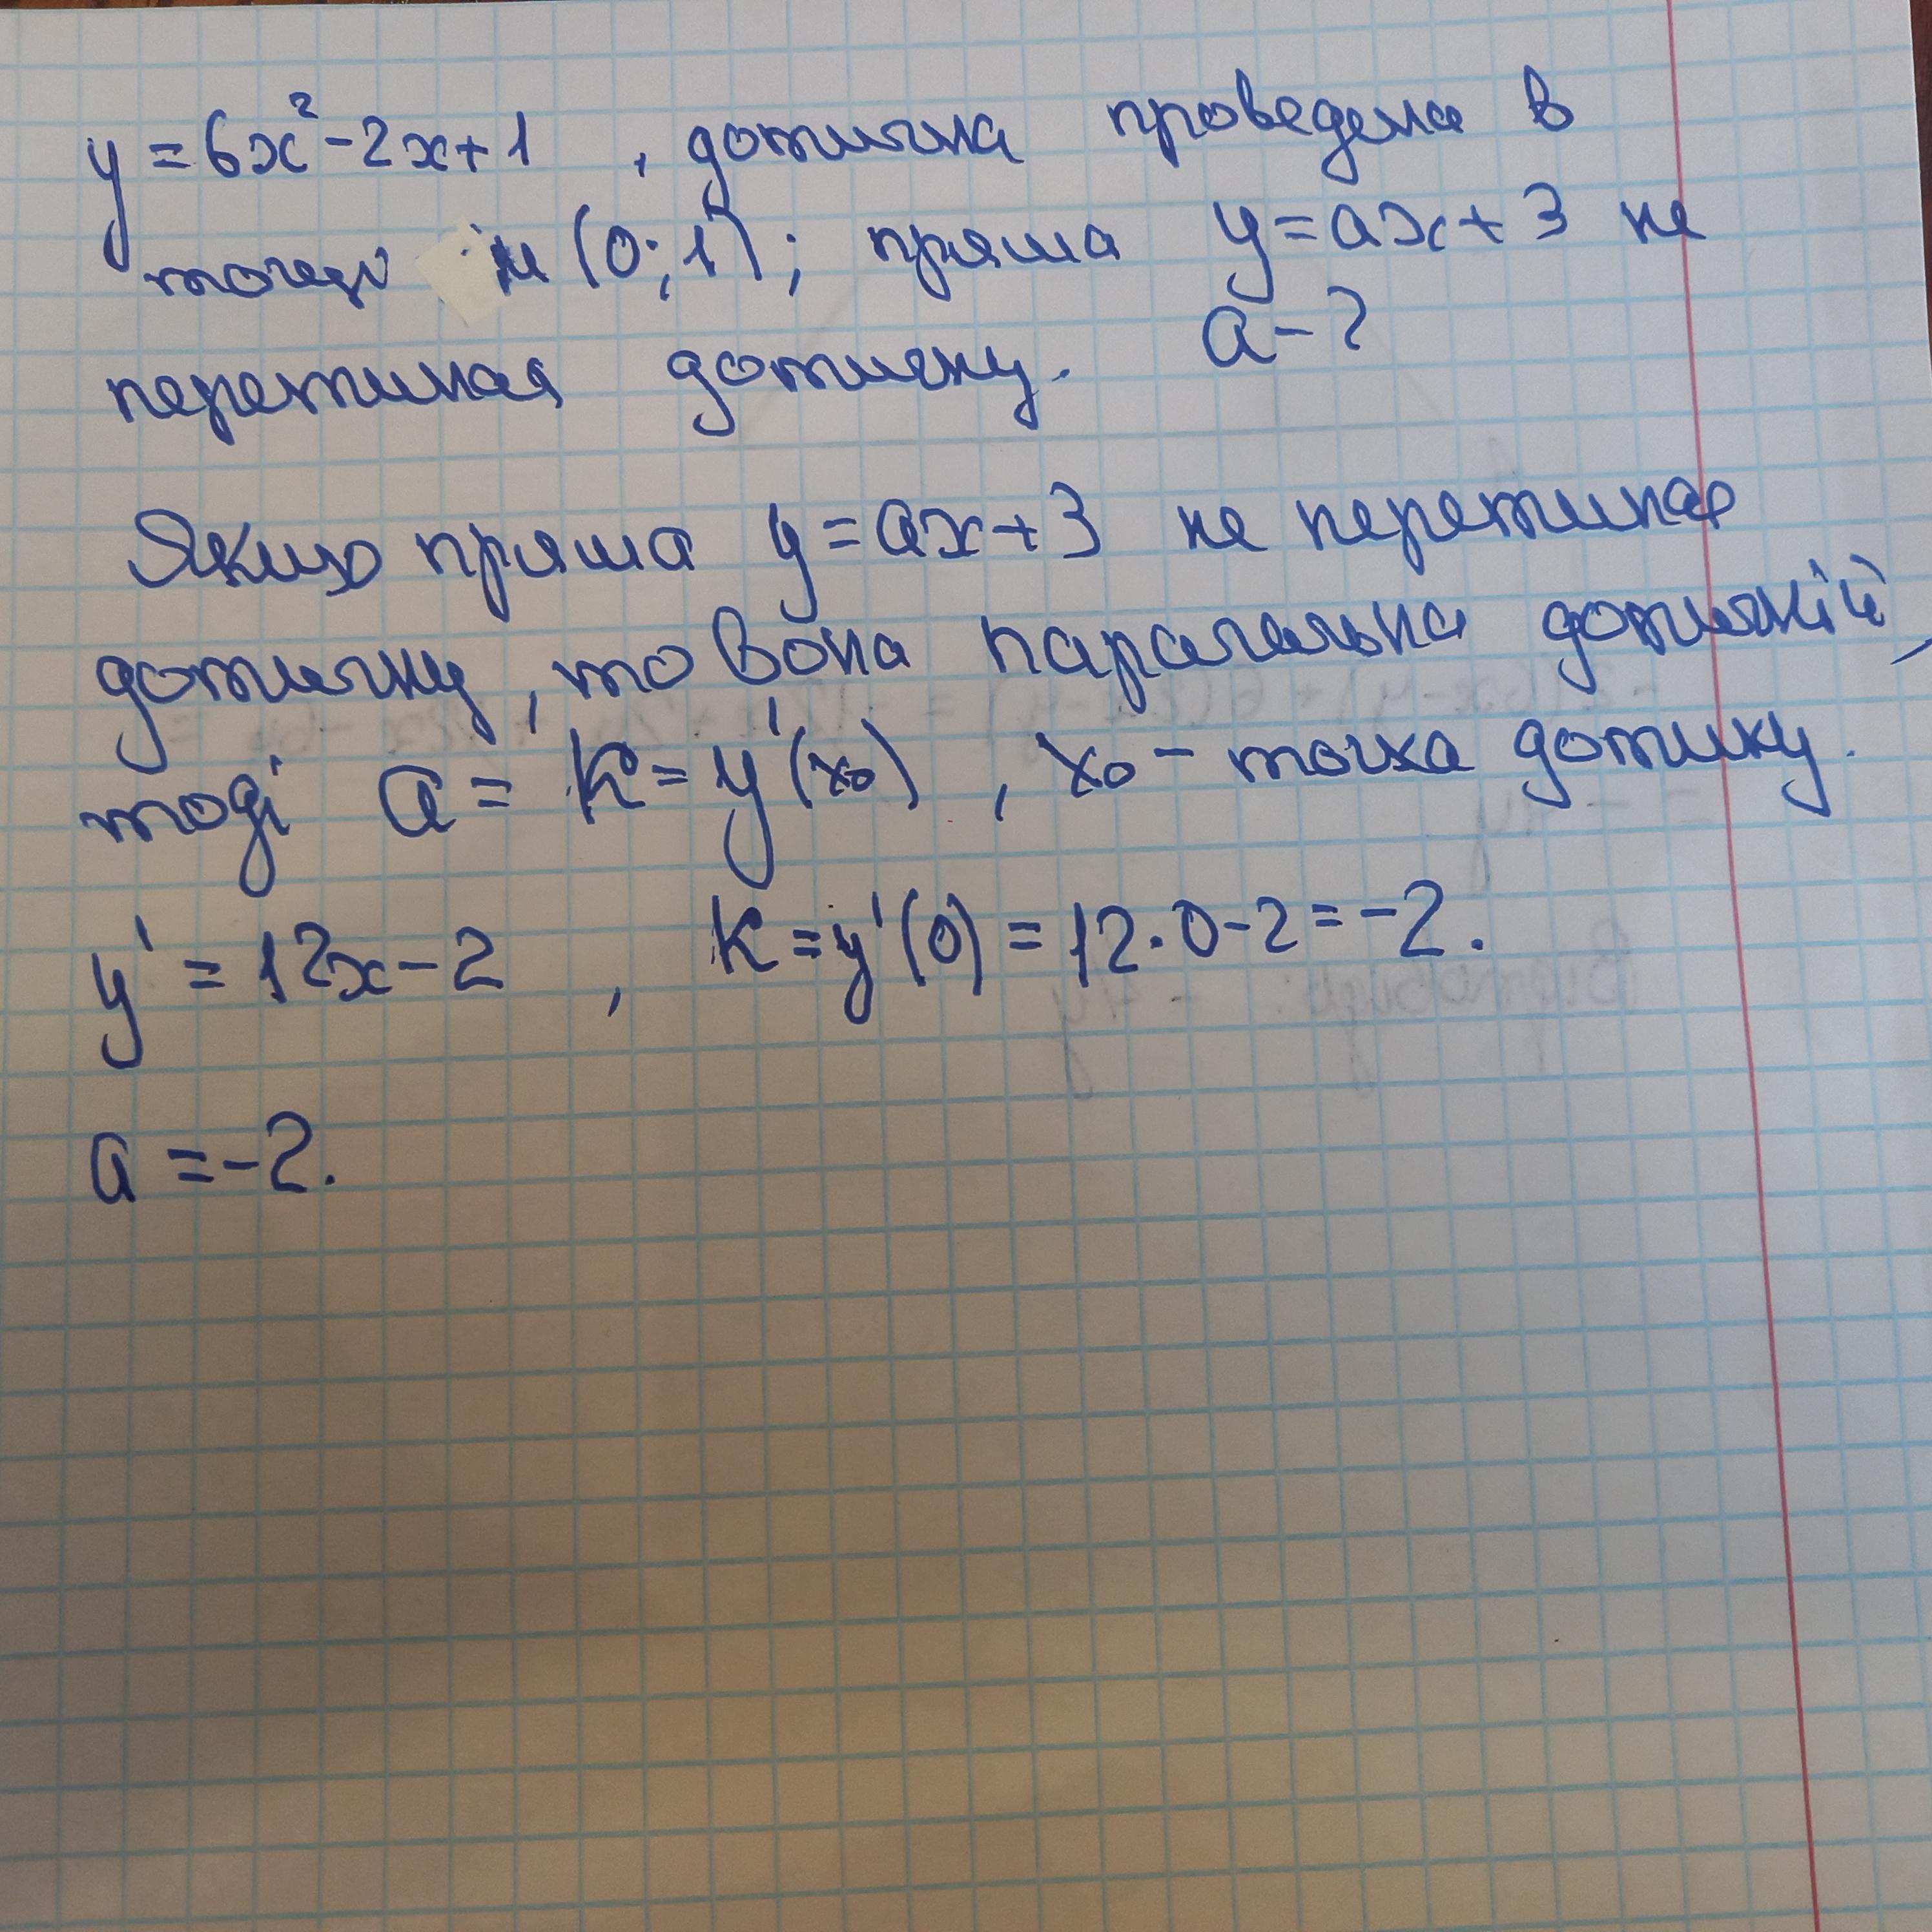 y = 6x² - 2x + 1 , дотична проведена в
точці м (0; 1); пряма y = ax + 3 не
перетинає дотичну. a - ?
Якщо пряма y = ax + 3 не перетинає
дотичну, то вона паралельна дотичній,
тоді a = k = y'(x₀) , x₀ - точка дотику.
y' = 12x - 2 , k = y'(0) = 12 · 0 - 2 = -2.
a = -2.